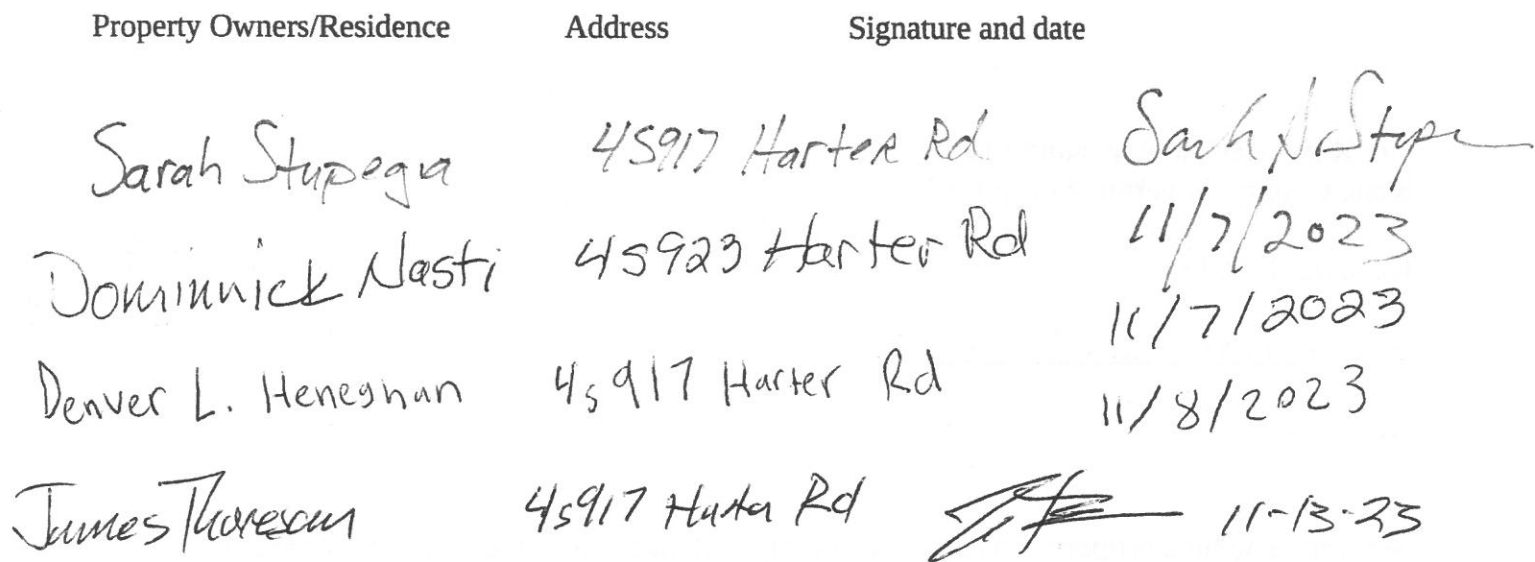 Property Owners/Residence Address Signature and date
Sarah Stupegia 4S917 Harter Rd Sarah N Stupe
11/7/2023
Dominnick Nasti 4S923 Harter Rd
11/7/2023
Denver L. Heneghan 4S917 Harter Rd 11/8/2023
James Thoresen 4S917 Harter Rd 11-13-23